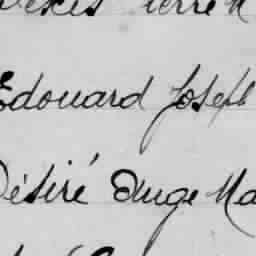 Edouard Joseph
Désiré Ange Ma